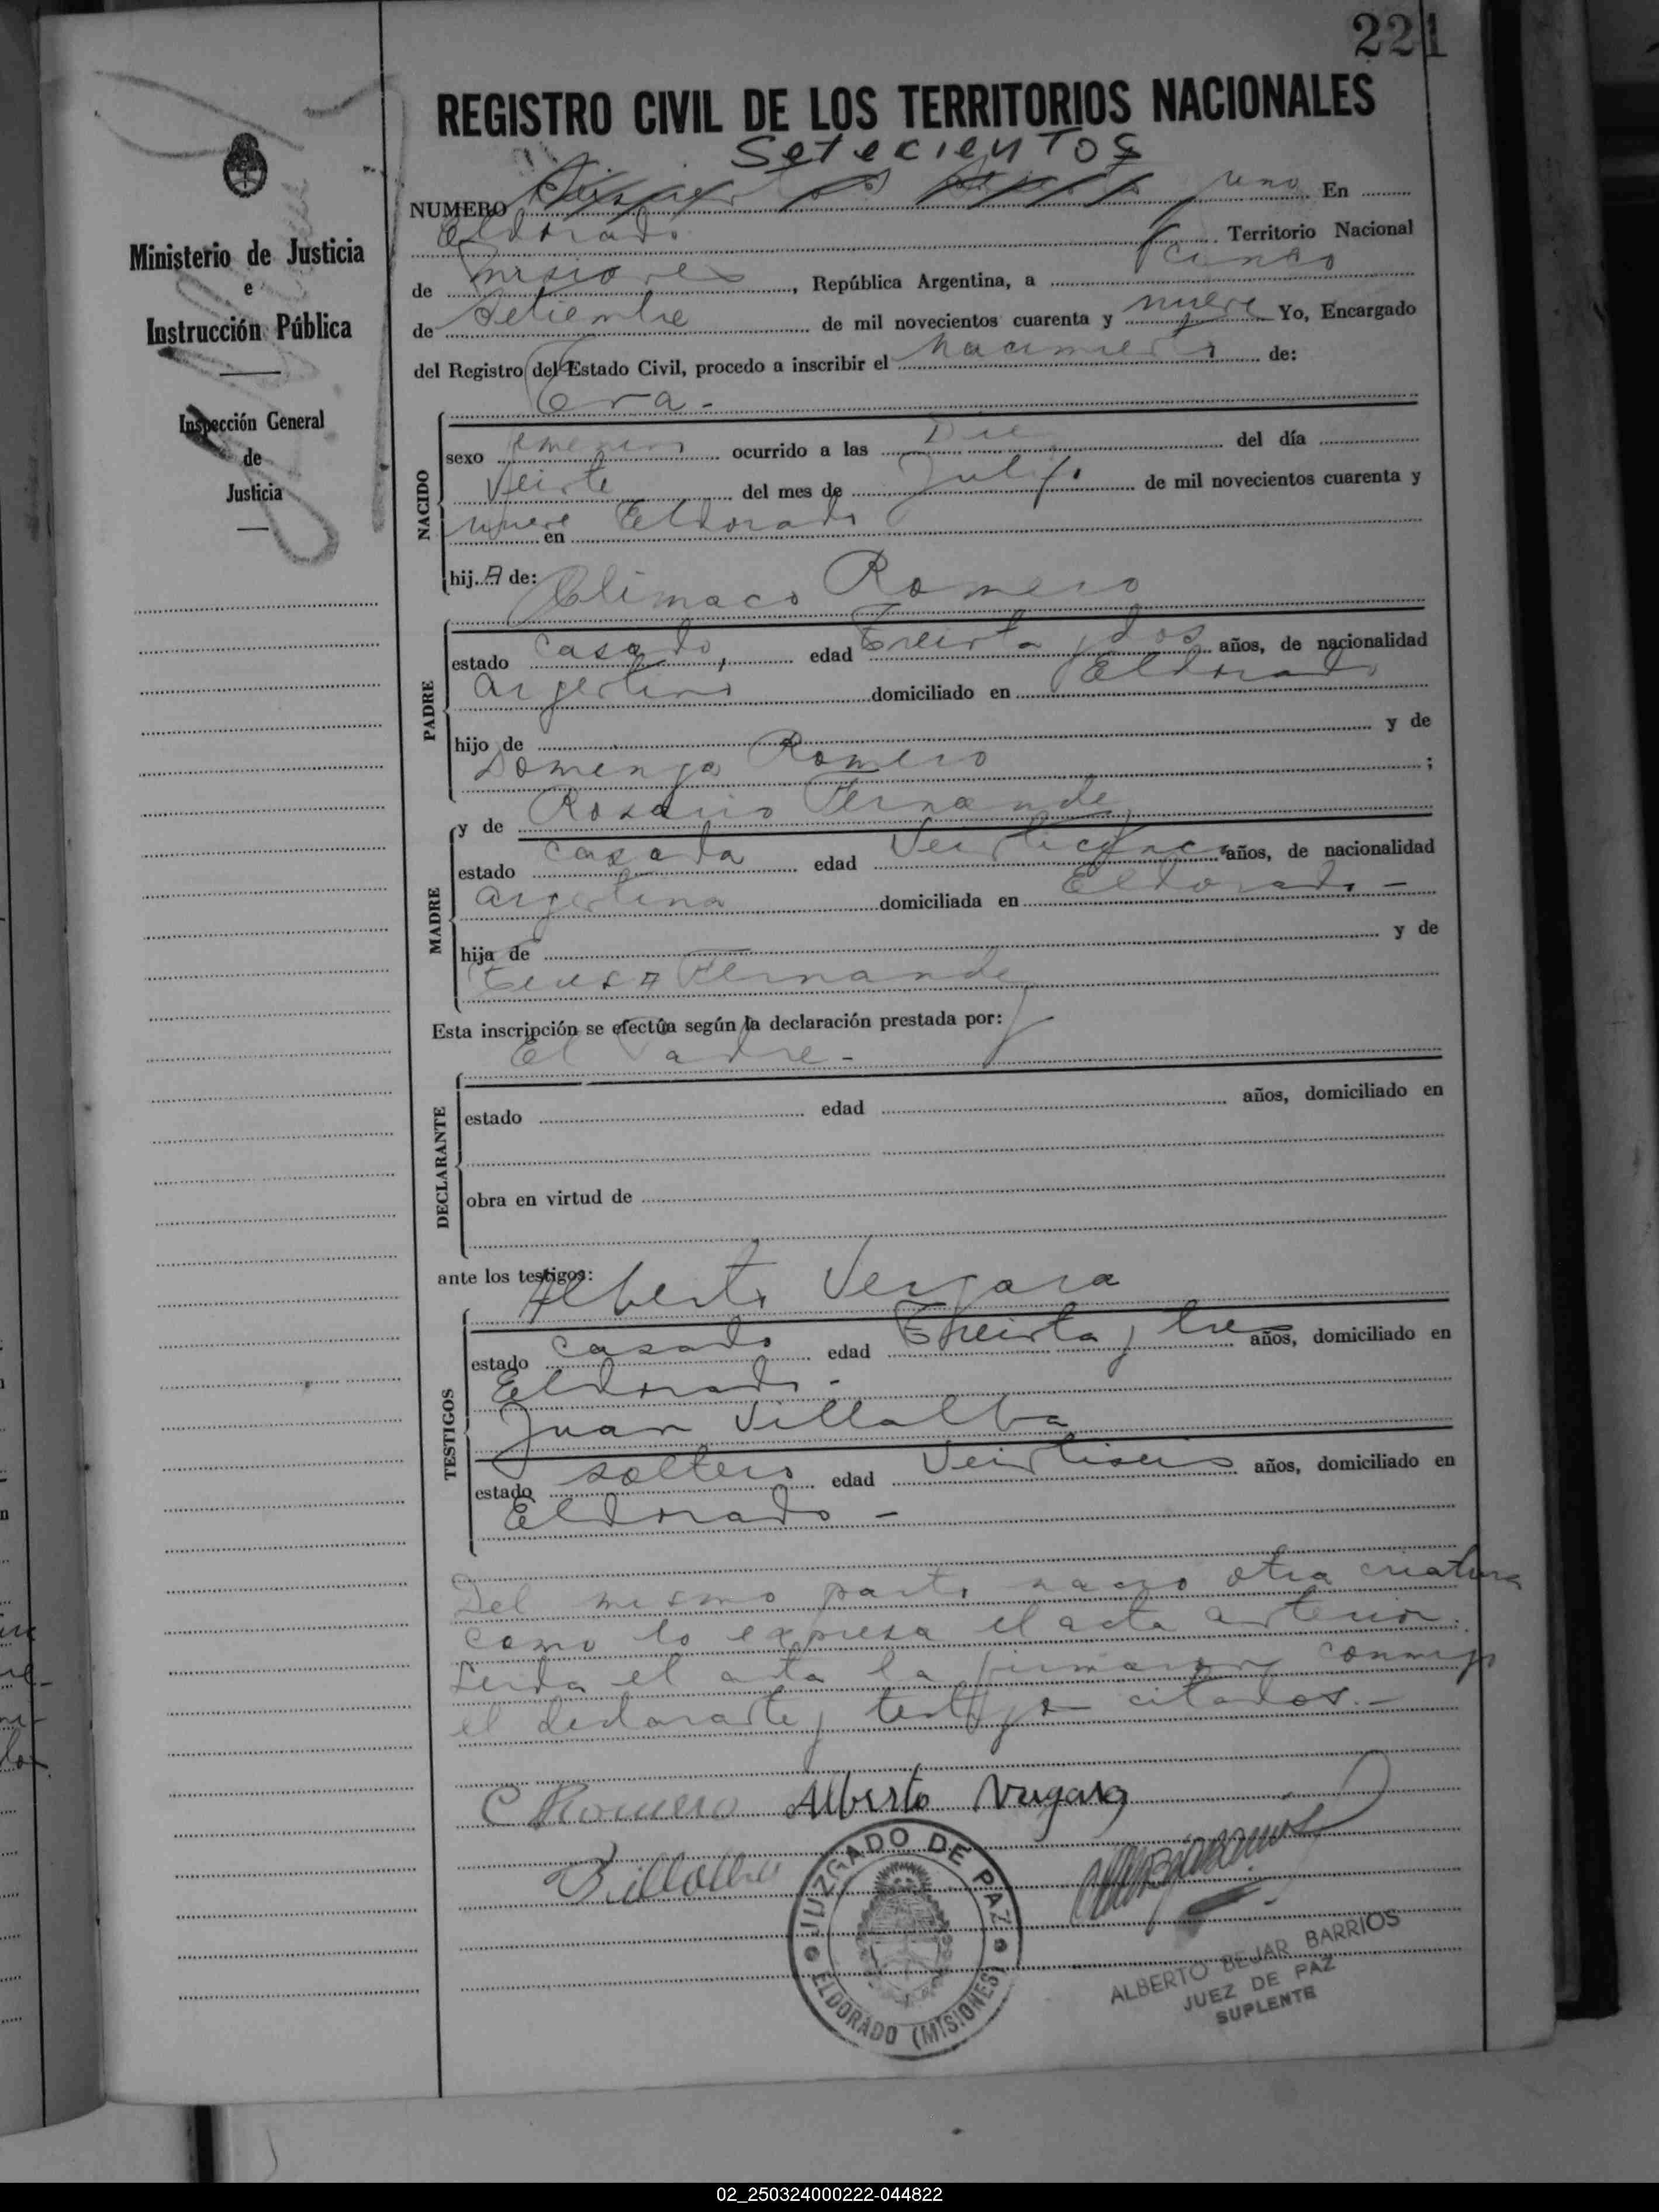 221
REGISTRO CIVIL DE LOS TERRITORIOS NACIONALES
Setecientos
NUMERO y uno En
Eldorado Territorio Nacional
de Misiones, República Argentina, a cinco
de Setiembre de mil novecientos cuarenta y nueve Yo, Encargado
del Registro del Estado Civil, procedo a inscribir el nacimiento de:
Ministerio de Justicia
e
Instrucción Pública
Inspección General
de
Justicia
NACIDO
sexo femenino ocurrido a las del día
Veinte del mes de Julio de mil novecientos cuarenta y
nueve en Eldorado
hij.A de: Climaco Romero
PADRE
estado casado, edad Treinta y dos años, de nacionalidad
argentino domiciliado en Eldorado
hijo de y de
Domenga Romero ;
y de Rosario Fernandez
MADRE
estado casada edad años, de nacionalidad
argentina domiciliada en Eldorado -
hija de y de
Teresa Fernandez
Esta inscripción se efectúa según la declaración prestada por:
El Padre -
DECLARANTE
estado edad años, domiciliado en
obra en virtud de
ante los testigos: Alberto Vergara
TESTIGOS
estado casado edad Treinta y tres años, domiciliado en
Eldorado -
Juan Villalba
estado soltero edad Veintiseis años, domiciliado en
Eldorado -
Del mismo parto nacio otra criatura
como lo expresa el acta anterior.
Leida el acta la firmaron conmigo
el declarante y testigos citados.-
C Romero Alberto Vergara
Villalba
JUZGADO DE PAZ
ELDORADO (MISIONES)
ALBERTO BEJAR BARRIOS
JUEZ DE PAZ
SUPLENTE
02_250324000222-044822